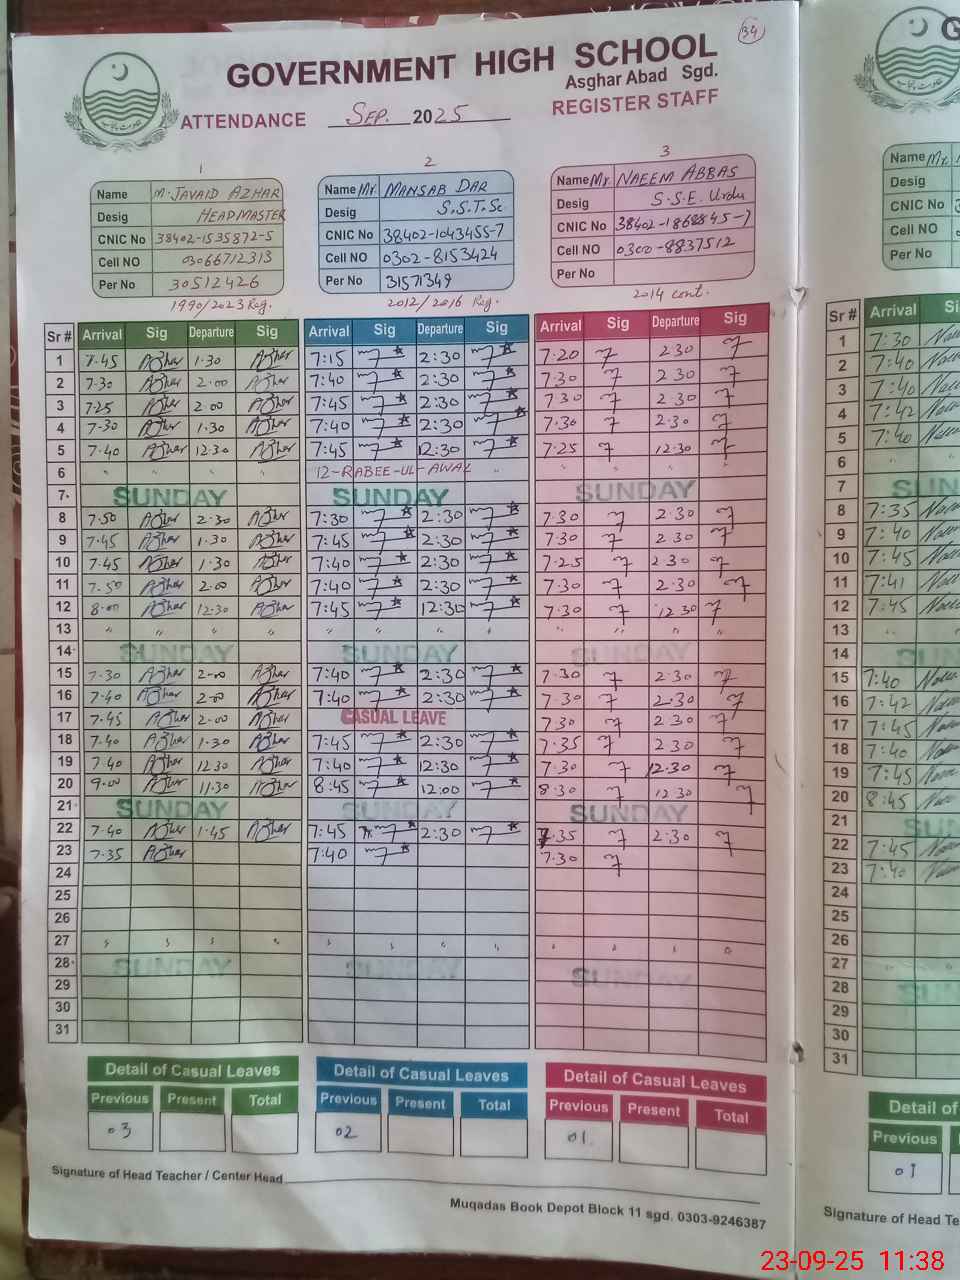 34
GOVERNMENT HIGH SCHOOL
Asghar Abad Sgd.
ATTENDANCE SEP. 2025 REGISTER STAFF
1
Name M. JAVAID AZHAR
Desig HEADMASTER
CNIC No 38402-1535872-5
Cell NO 03066712313
Per No 30512426
1990/2023 Reg.
2
Name Mr. MANSAB DAR
Desig S.S.T.Sc
CNIC No 38402-1043455-7
Cell NO 0302-8153424
Per No 31571349
2012/2016 Reg.
3
Name Mr. NAEEM ABBAS
Desig S.S.E. Urdu
CNIC No 38402-1868845-7
Cell NO 0300-8837512
Per No
2014 cont.
Sr # Arrival Sig Departure Sig Arrival Sig Departure Sig Arrival Sig Departure Sig
1 7.45 Azhar 1.30 Azhar 7:15 2:30 7.20 2 30
2 7.30 Azhar 2.00 Azhar 7:40 2:30 7.30 2 30
3 7.25 Azhar 2.00 Azhar 7:45 2:30 7.30 2.30
4 7.30 Azhar 1.30 Azhar 7:40 2:30 7.30 2.30
5 7.40 Azhar 12.30 Azhar 7:45 12:30 7.25 12.30
6 12-RABEE-UL-AWAL
7 SUNDAY SUNDAY SUNDAY
8 7.50 Azhar 2.30 Azhar 7:30 2:30 7.30 2.30
9 7.45 Azhar 1.30 Azhar 7:45 2:30 7.30 2.30
10 7.45 Azhar 1.30 Azhar 7:40 2:30 7.25 2 30
11 7.50 Azhar 2.00 Azhar 7:40 2:30 7.30 2.30
12 8.00 Azhar 12.30 Azhar 7:45 12:30 7.30 12 30
13
14 SUNDAY SUNDAY SUNDAY
15 7.30 Azhar 2.00 Azhar 7:40 2:30 7.30 2.30
16 7.40 Azhar 2.00 Azhar 7:40 2:30 7.30 2.30
17 7.45 Azhar 2.00 Azhar CASUAL LEAVE 7.30 2 30
18 7.40 Azhar 1.30 Azhar 7:45 2:30 7.35 2 30
19 7.40 Azhar 12.30 Azhar 7:40 12:30 7.30 12.30
20 9.00 Azhar 11.30 Azhar 8:45 12:00 8.30 12.30
21 SUNDAY SUNDAY SUNDAY
22 7.40 Azhar 1.45 Azhar 7:45 2:30 7.35 2:30
23 7.35 Azhar 7:40 7.30
24
25
26
27
28 SUNDAY SUNDAY SUNDAY
29
30
31
Detail of Casual Leaves Detail of Casual Leaves Detail of Casual Leaves
Previous Present Total Previous Present Total Previous Present Total
03 02 01
Signature of Head Teacher / Center Head
Muqadas Book Depot Block 11 sgd. 0303-9246387
G
Name Mr.
Desig
CNIC No
Cell NO
Per No
Sr # Arrival
1 7:30
2 7:40
3 7:40
4 7:42
5 7:40
6
7 SUN
8 7:35
9 7:40
10 7:45
11 7:41
12 7:45
13
14 SUN
15 7:40
16 7:42
17 7:45
18 7:40
19 7:45
20 8:45
21 SUN
22 7:45
23 7:40
24
25
26
27
28
29
30
31
Detail of
Previous
01
Signature of Head Te
23-09-25 11:38